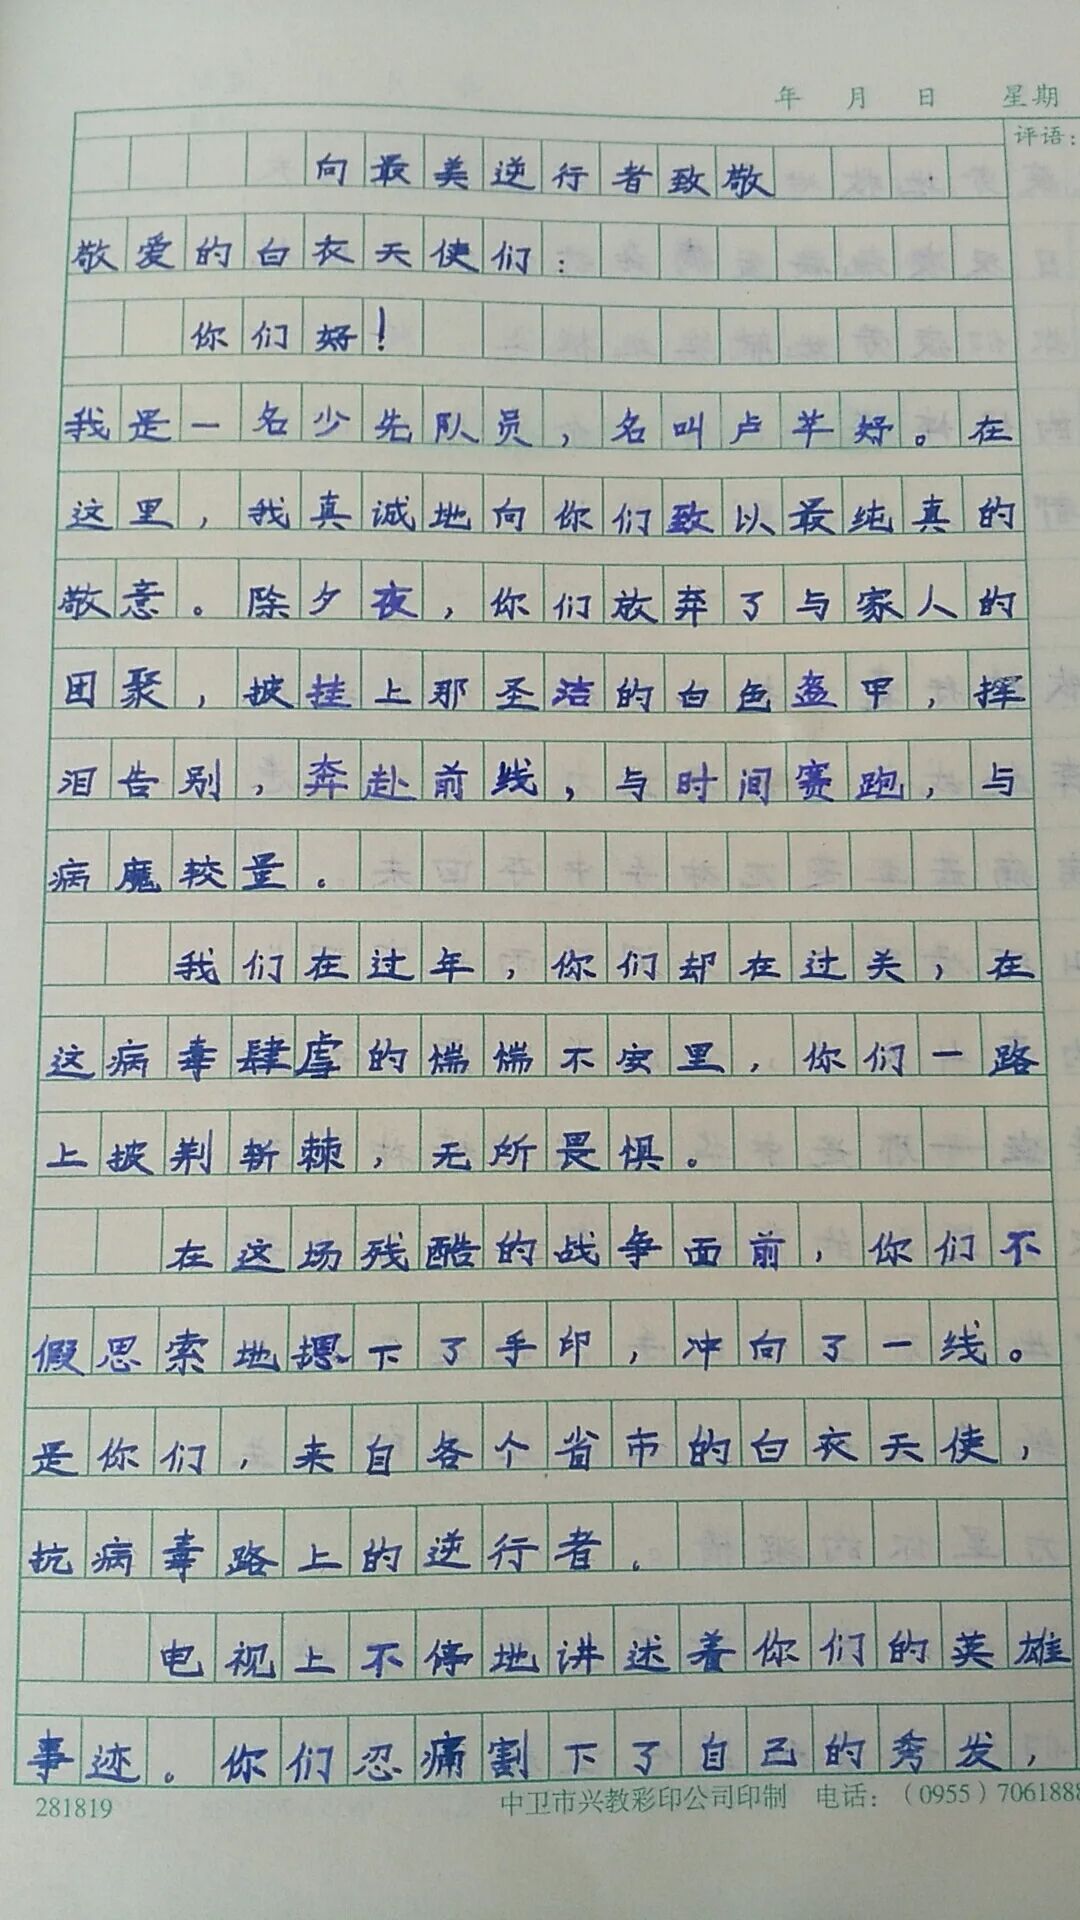 年 月 日 星期
评语：
向最美逆行者致敬
敬爱的白衣天使们：
你们好！
我是一名少先队员，名叫卢芊妤。在
这里，我真诚地向你们致以最纯真的
敬意。除夕夜，你们放弃了与家人的
团聚，披挂上那圣洁的白色盔甲，挥
泪告别，奔赴前线，与时间赛跑，与
病魔较量。
我们在过年，你们却在过关，在
这病毒肆虐的惴惴不安里，你们一路
上披荆斩棘，无所畏惧。
在这场残酷的战争面前，你们不
假思索地摁下了手印，冲向了一线。
是你们，来自各个省市的白衣天使，
抗病毒路上的逆行者。
电视上不停地讲述着你们的英雄
事迹。你们忍痛割下了自己的秀发，
281819 中卫市兴教彩印公司印制 电话：（0955）7061888